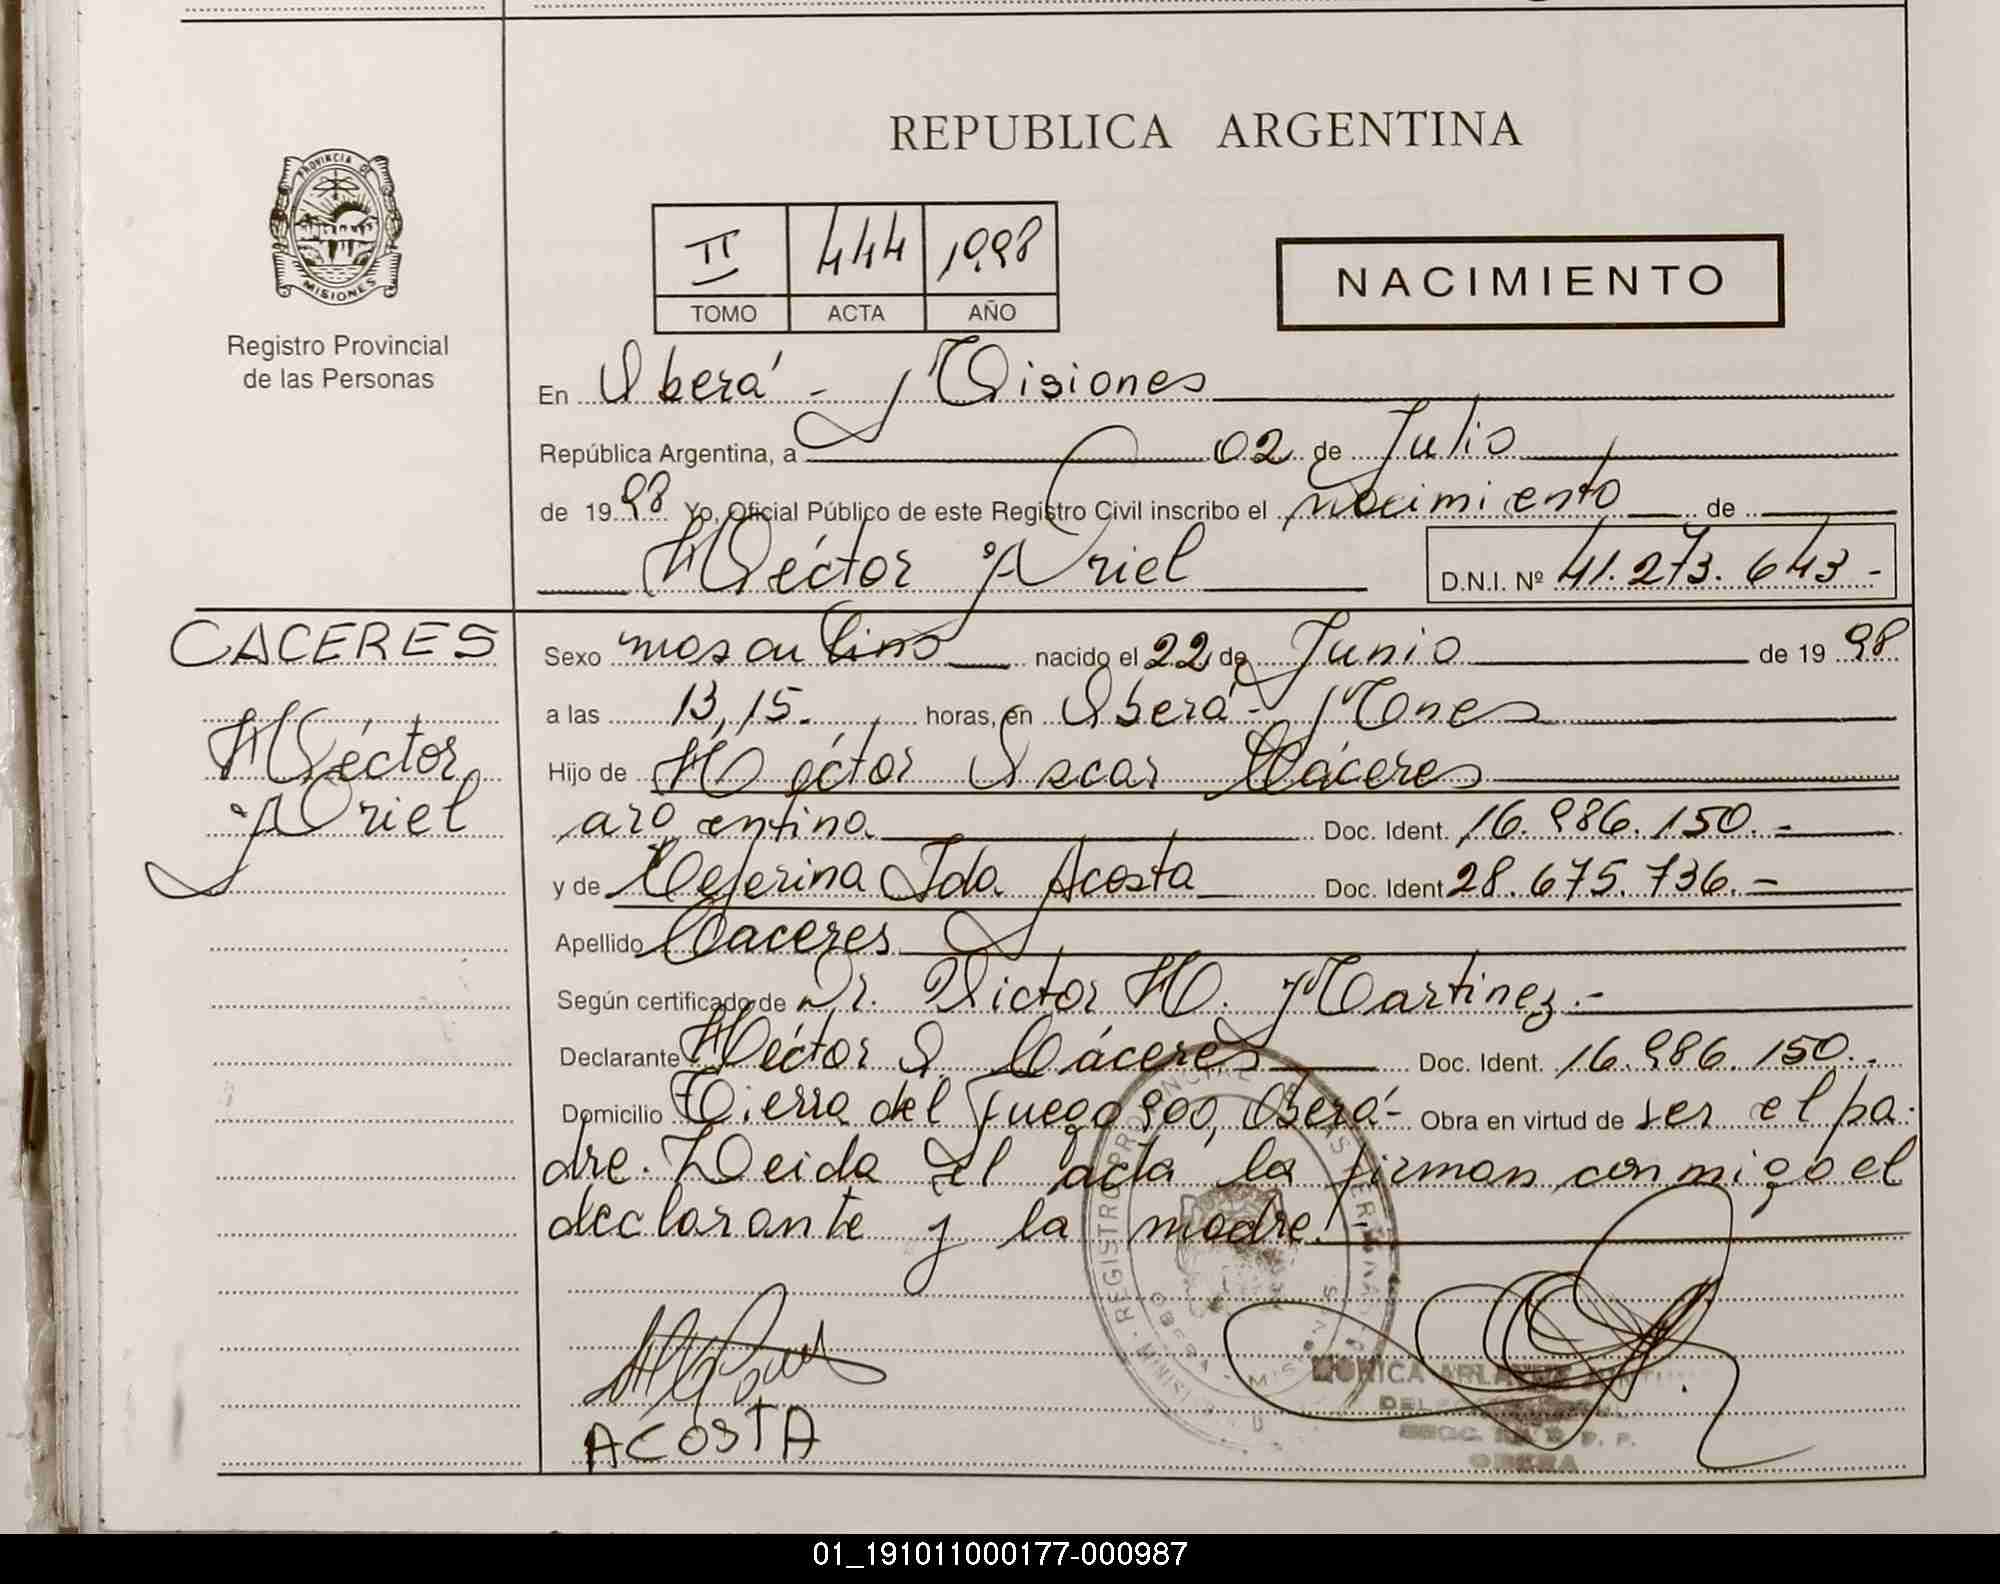 REPUBLICA ARGENTINA
PROVINCIA DE
MISIONES
Registro Provincial
de las Personas
II 444 1998
TOMO ACTA AÑO
NACIMIENTO
En Oberá - Misiones
República Argentina, a 02 de Julio
de 1998 Yo, Oficial Público de este Registro Civil inscribo el nacimiento de
Héctor Ariel D.N.I. Nº 41.273.643-
CACERES
Héctor
Ariel
Sexo masculino nacido el 22 de Junio de 1998
a las 13,15. horas, en Oberá - Mones
Hijo de Héctor Oscar Cáceres
argentina Doc. Ident. 16.986.150.-
y de Ceferina Ida Acosta Doc. Ident 28.675.736.-
Apellido Caceres
Según certificado de Dr. Victor H. Martinez.-
Declarante Héctor O. Cáceres Doc. Ident. 16.986.150.-
Domicilio Tierra del Fuego 900, Oberá- Obra en virtud de ser el pa-
dre. Leida el acta la firman conmigo el
declarante y la madre.-
REGISTRO PROVINCIAL DE LAS PERSONAS
OBERA - MISIONES
ACOSTA
MONICA
OBERA
01_191011000177-000987